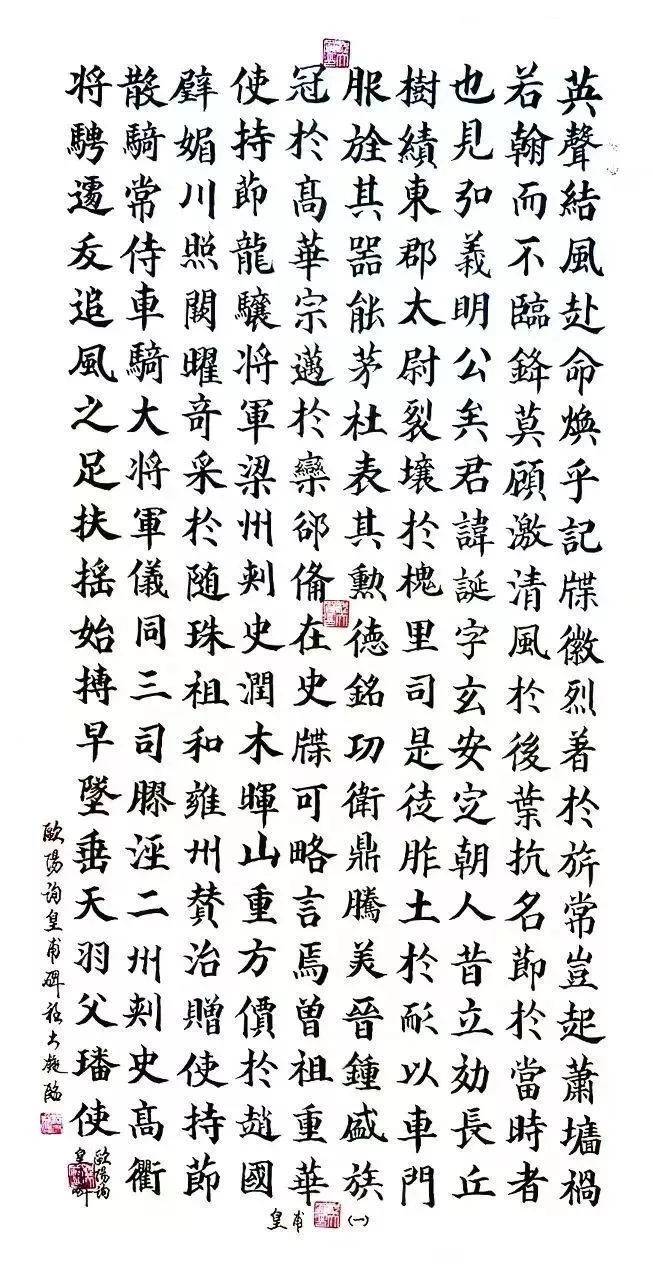 英聲結風赴命煥乎記牒徽烈著於旂常豈起蕭墻禍
若翰而不臨鋒莫顧激清風於後葉抗名節於當時者
也見弘義明公矣君諱誕字玄安定朝人昔立効長丘
樹績東郡太尉裂壤於槐里司是徒胙土於耏以車門
服旌其器能茅社表其勲德銘功衛鼎騰美晉鍾盛族
冠於髙華宗邁於欒郤俻在史牒可略言焉曽祖重華
使持節龍驤将軍梁州刺史潤木暉山重方價於趙國
璧媚川照闕曜竒采於随珠祖和雍州賛治贈使持節
散騎常侍車騎大将軍儀同三司膠涇二州刺史髙衢
将騁遽夭追風之足扶揺始搏早墜垂天羽父璠使
歐陽询皇甫碑 臨
歐陽询
皇甫 (一)